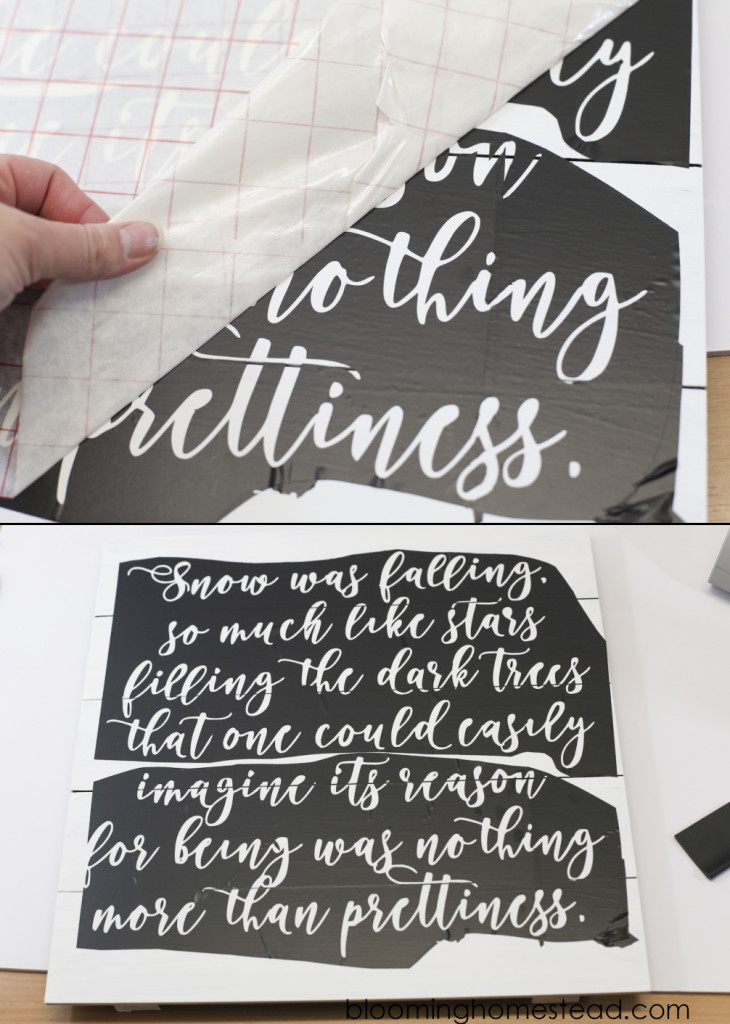 ly
son
nothing
prettiness.
Snow was falling,
so much like stars
filling the dark trees
that one could easily
imagine its reason
for being was nothing
more than prettiness.
bloominghomestead.com